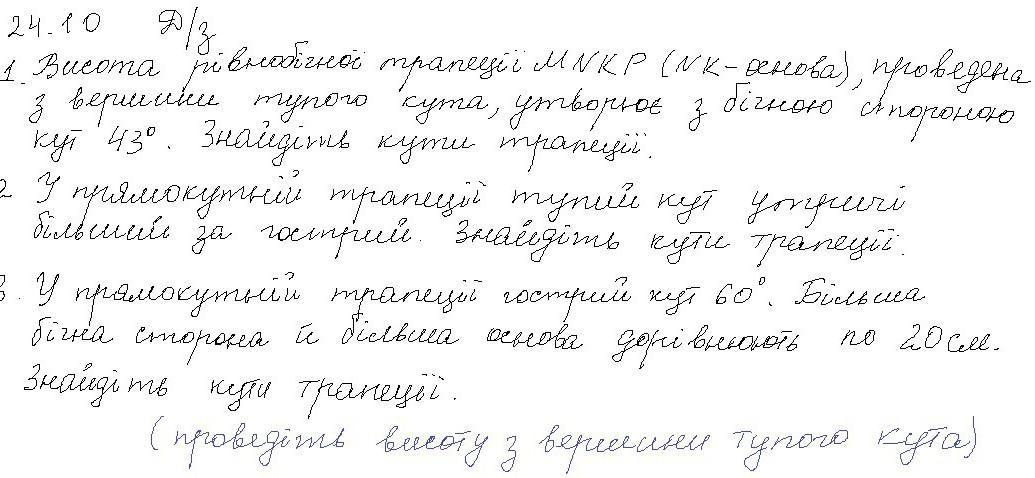 24.10 Д/з
1. Висота рівнобічної трапеції MNKP (NK-основа), проведена
з вершини тупого кута, утворює з бічною стороною
кут 43°. Знайдіть кути трапеції.
2 У прямокутній трапеції тупий кут утричі
більший за гострий. Знайдіть кути трапеції.
3. У прямокутній трапеції гострий кут 60°. Більша
бічна сторона й більша основа дорівнюють по 20 см.
Знайдіть кути трапеції.
(проведіть висоту з вершини тупого кута)